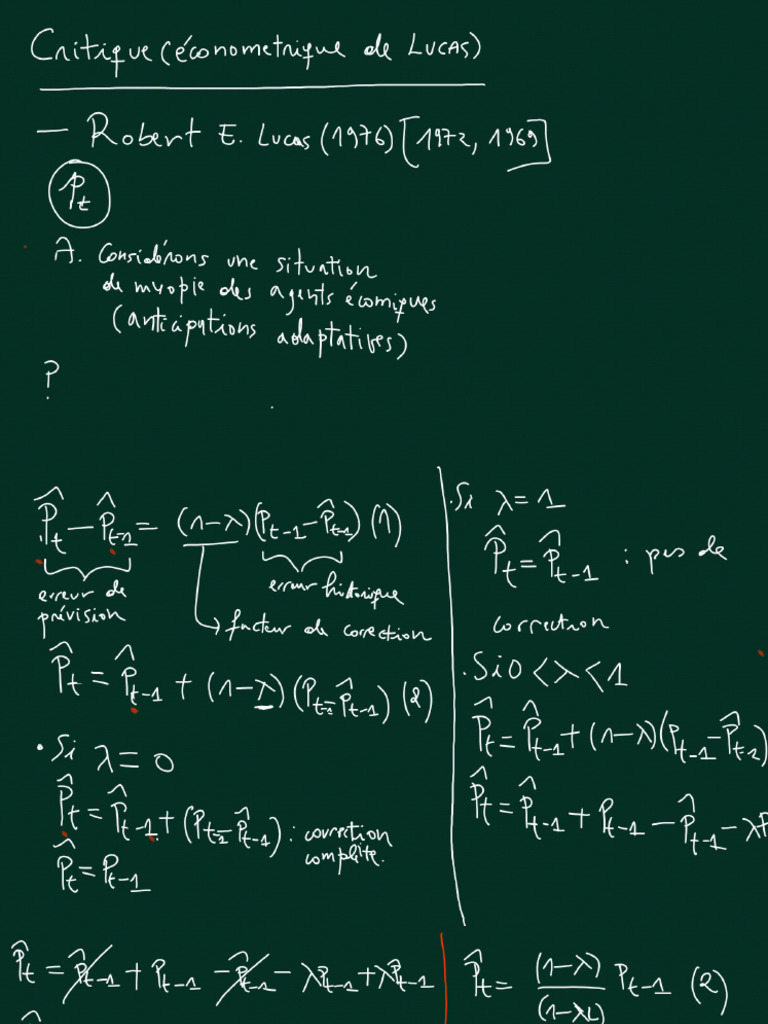 Critique (économetrique de Lucas)
— Robert E. Lucas (1976) [1972, 1969]
P_t
A. Considérons une situation
de myopie des agents écomiques
(anticipations adaptatives)
?
P̂_t − P̂_{t-1} = (1−λ)(P_{t-1} − P̂_{t-1}) (1)
erreur de
prévision
erreur historique
→ facteur de correction
P̂_t = P̂_{t-1} + (1−λ)(P_{t-1} − P̂_{t-1}) (2)
• Si λ = 0
P̂_t = P̂_{t-1} + (P_{t-1} − P̂_{t-1}) : correction
complète.
P̂_t = P_{t-1}
. Si λ = 1
P̂_t = P̂_{t-1} : pas de
correction
. Si 0 < λ < 1
P̂_t = P̂_{t-1} + (1−λ)(P_{t-1} − P̂_{t-1})
P̂_t = P̂_{t-1} + P_{t-1} − P̂_{t-1} − λP
P̂_t = P̂_{t-1} + P_{t-1} − P̂_{t-1} − λP_{t-1} + λP̂_{t-1}
P̂_t = (1−λ)/(1−λL) P_{t-1} (2)